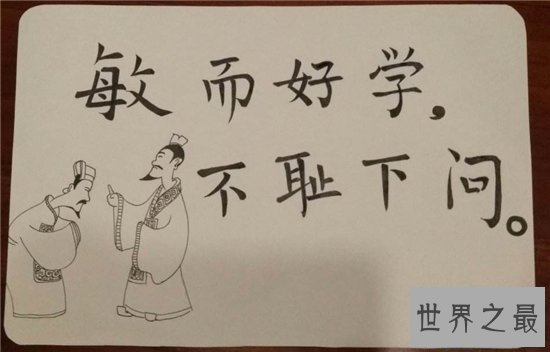 敏而好学，
不耻下问。
世界之最